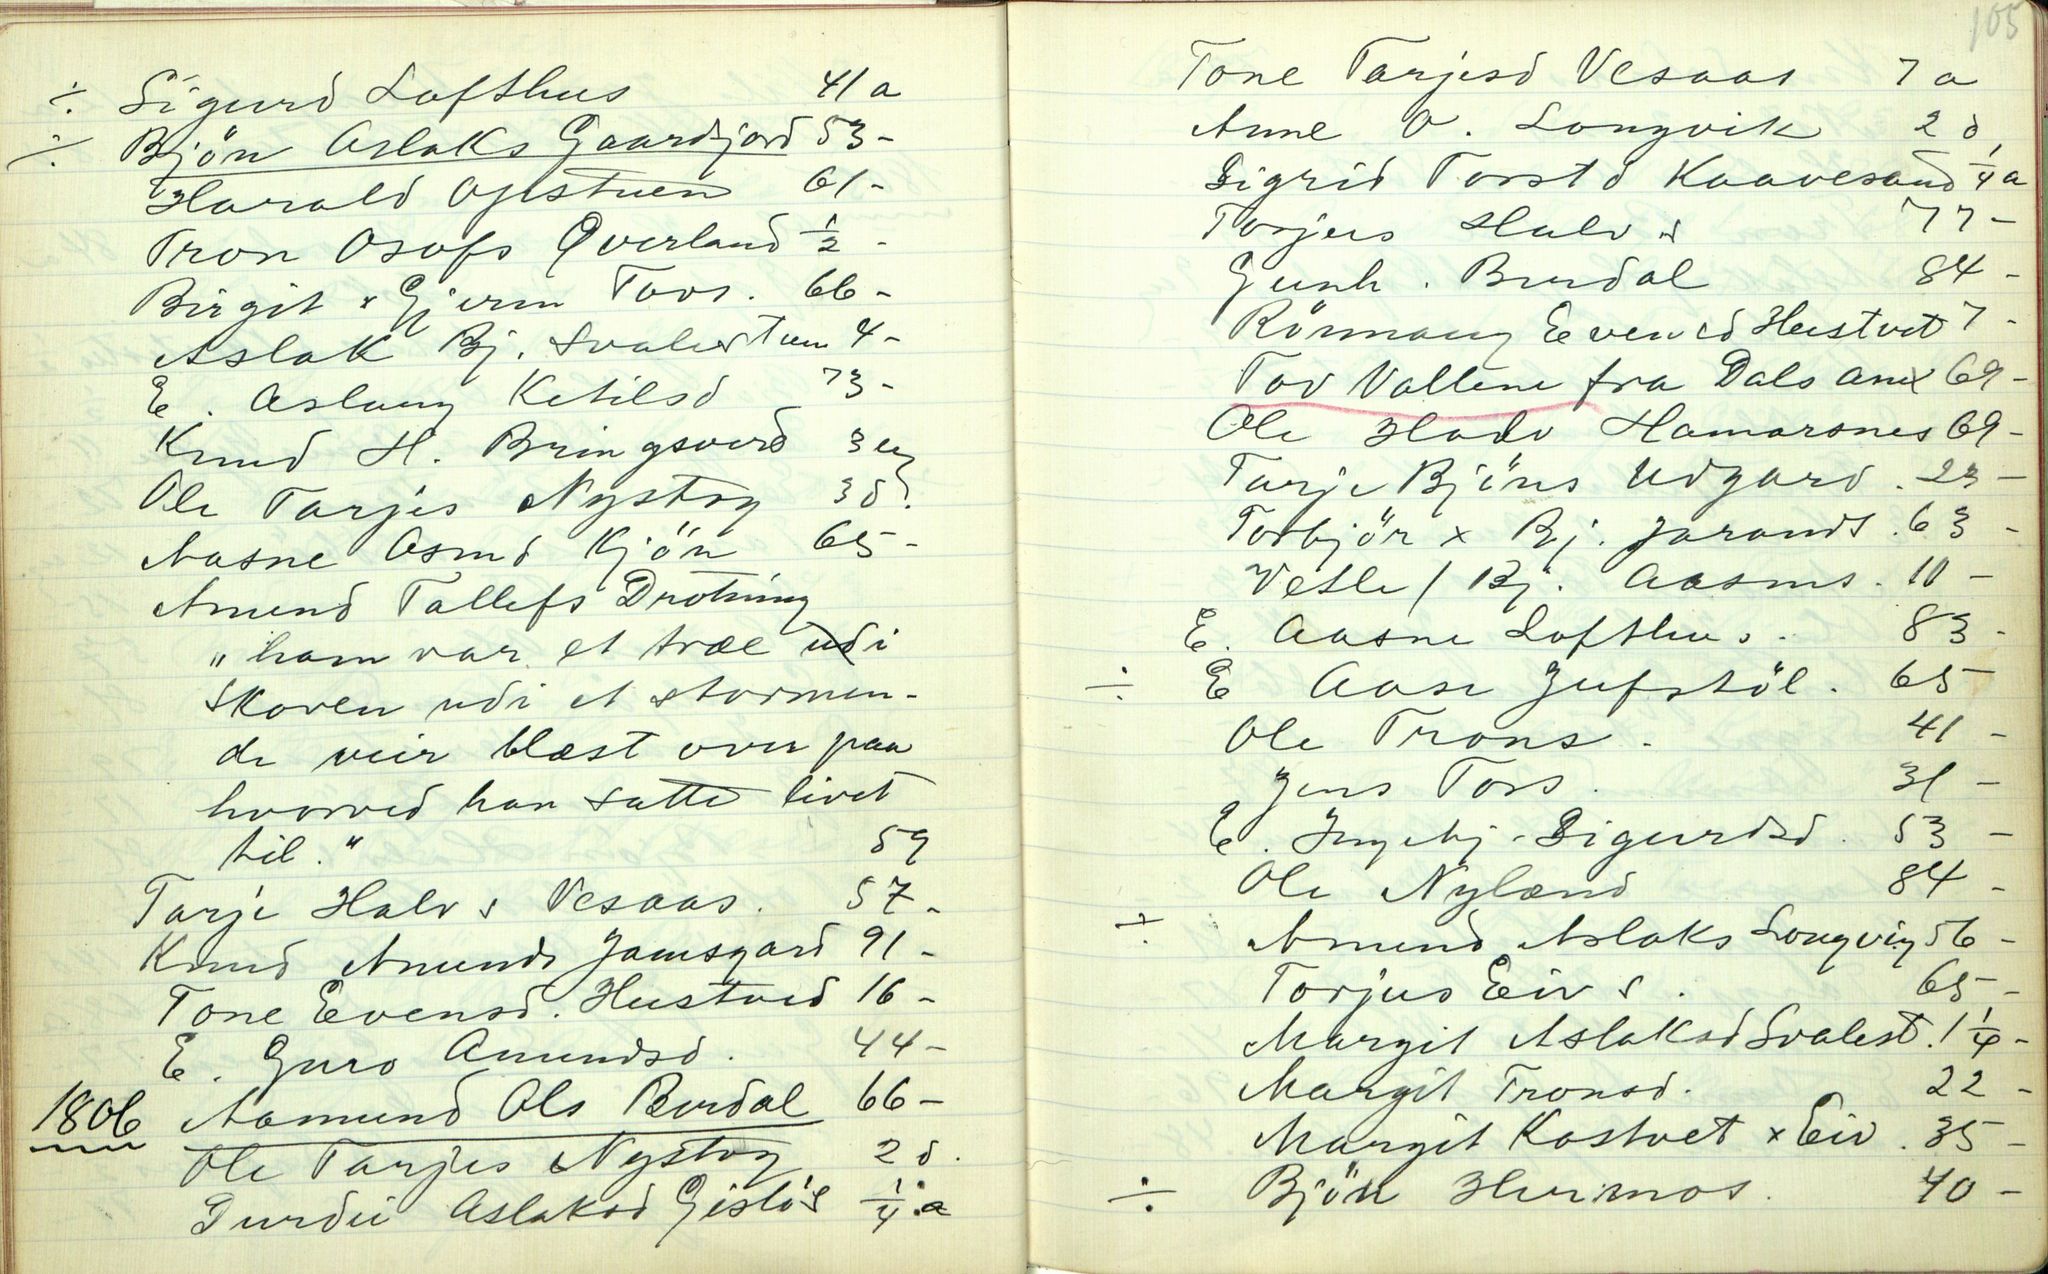 ÷ Sigurd Lofthus 41 a
÷ Bjön Aslaks Gaardsjord 53 -
Harald Opistuen 61 -
Tron Osofs Qverland 1/2 -
Birgit x Gjerm Tovs. 66 -
Aslak Bj. Svalestuen 4 -
E. Aslaug Ketilsd 73 -
Knud H. Bringsverd 3 u
Ole Tarjes Nystog 3 d.
Aasne Asmd Kjön 65 -
Amund Tallefs Drotning
"ham var et træ udi
skoven udi et stormen-
de veir blæst over paa
hvorved han satte livet
til." 59
Tarje Halvs Vesaas. 57 -
Knud Amunds Jamsgard 91 -
Tone Evensd. Hustved 16 -
E. Guro Amundsd. 44 -
1806 Aamund Ols Berdal 66 -
Ole Tarjes Nystog 2 d.
Durdei Aslaksd Gistöl 1/4 a
105
Tone Tarjesd Vesaas 7 a
Anne O. Longvik 2 d
Sigrid Torstd Kaavesand 1/4 a
Torjus Halvs 77 -
Gunh. Burdal 84 -
Rönnaug Evensd Hustvet 7 -
Tov Vallene fra Dals anex 69 -
Ole Hadv Hamarsnes 69 -
Tarje Bjöns Udgard. 23 -
Torbjör x Bj. Jarands. 63 -
Vetle / Bj. Aasms. 11 -
E. Aasne Lofthus. 83 -
÷ E Aase Jufstöl. 65 -
Ole Trons. 41 -
Jens Tors. 31 -
E. Ingebj. Sigurdsd. 53 -
Ole Nyland 84 -
÷ Amund Aslaks Longvig 56 -
Torjus Eivs. 65 -
Margit Aslaksd Svalest. 1 1/4 -
Margit Tronsd. 22 -
Margit Kostvet x Eiv. 35 -
÷ Bjön Hermos. 40 -